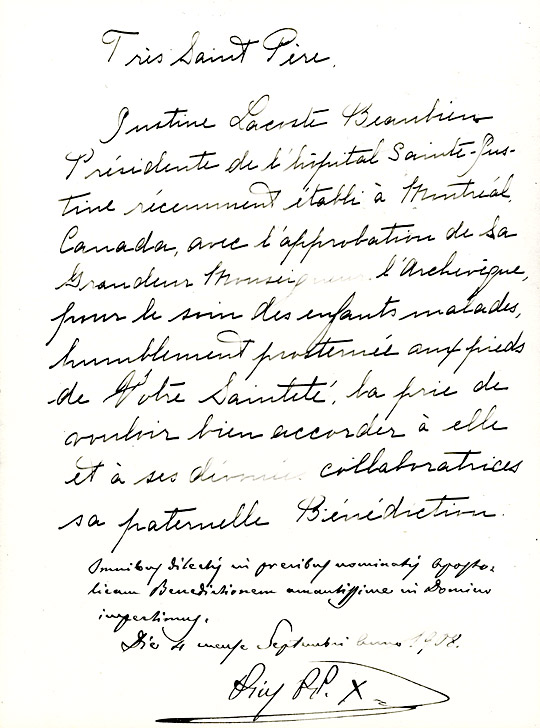 Très Saint Père.
Justine Lacoste Beaubien
Présidente de l'hôpital Sainte-Jus-
tine récemment établi à Montréal,
Canada, avec l'approbation de Sa
Grandeur Monseigneur l'Archevêque,
pour le soin des enfants malades,
humblement prosternée aux pieds
de Votre Sainteté, la prie de
vouloir bien accorder à elle
et à ses dévouées collaboratrices
sa paternelle Bénédiction.
Omnibus dilectis in precibus nominatis Aposto-
licam Benedictionem amantissime in Domino
impertimus.
Die 4 mense Septembri anno 1908.
Pius PP. X